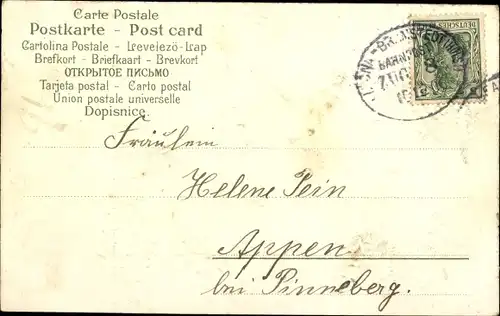 Carte Postale
Postkarte - Post card
Cartolina Postale - Levelező-Lap
Brefkort - Briefkaart - Brevkort
ОТКРЫТОЕ ПИСЬМО
Tarjeta postal - Carto postal
Union postale universelle
Dopisnice.
DEUTSCHES
BAHNPOST
ZUG
Fräulein
Helene Pein
Appen
bei Pinneberg.